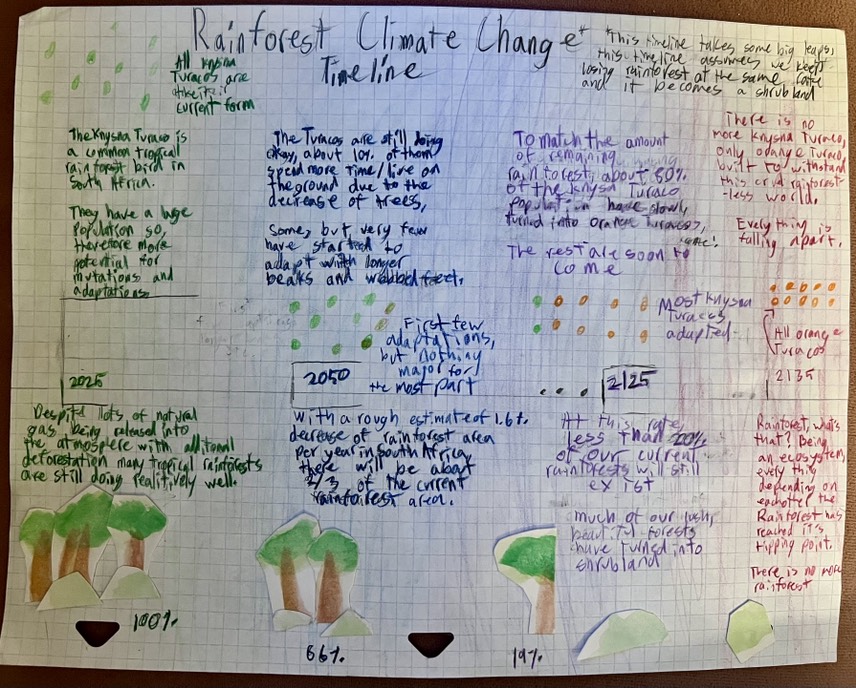 Rainforest Climate Change*
Timeline
*This timeline takes some big leaps,
this timeline assumes we keep
losing rainforest at the same rate
and it becomes a shrubland
All knysna
Turacos are
at their
current form
The Knysna Turaco is
a common tropical
rainforest bird in
South Africa.
They have a large
Population so,
therefore more
potential for
mutations and
adaptations.
2025
Despite lots of natural
gas being released into
the atmosphere with additonal
deforestation many tropical rainforests
are still doing realitively well.
100%
The Turacos are still doing
okay, about 10% of them
spend more time/live on
the ground due to the
decrease of trees,
Some, but very few
have started to
adapt with longer
beaks and webbed feet.
First few
adaptations,
but nothing
major for
the most part
2050
With a rough estimate of 1.6%
decrease of rainforest area
per year in South Africa,
there will be about
2/3 of the current
rainforest area.
66%
To match the amount
of remaining
rainforest, about 80%
of the knysna Turaco
population have slowly
turned into orange turacos,
The rest are soon to
come
Most knysna
Turacos
adapted
... 2125
At this rate,
less than 20%
of our current
rainforests will still
exist
much of our lush,
beautiful forests
have turned into
shrubland
19%
There is no
more knysna Turaco,
only orange Turaco,
built to withstand
this cruel rainforest
-less world.
Everything is
falling apart.
All orange
Turacos
... 2135
Rainforest, what's
that? Being
an ecosystem,
every thing
depending on
eachother the
Rainforest has
reached it's
tipping point.
There is no more
rainforest